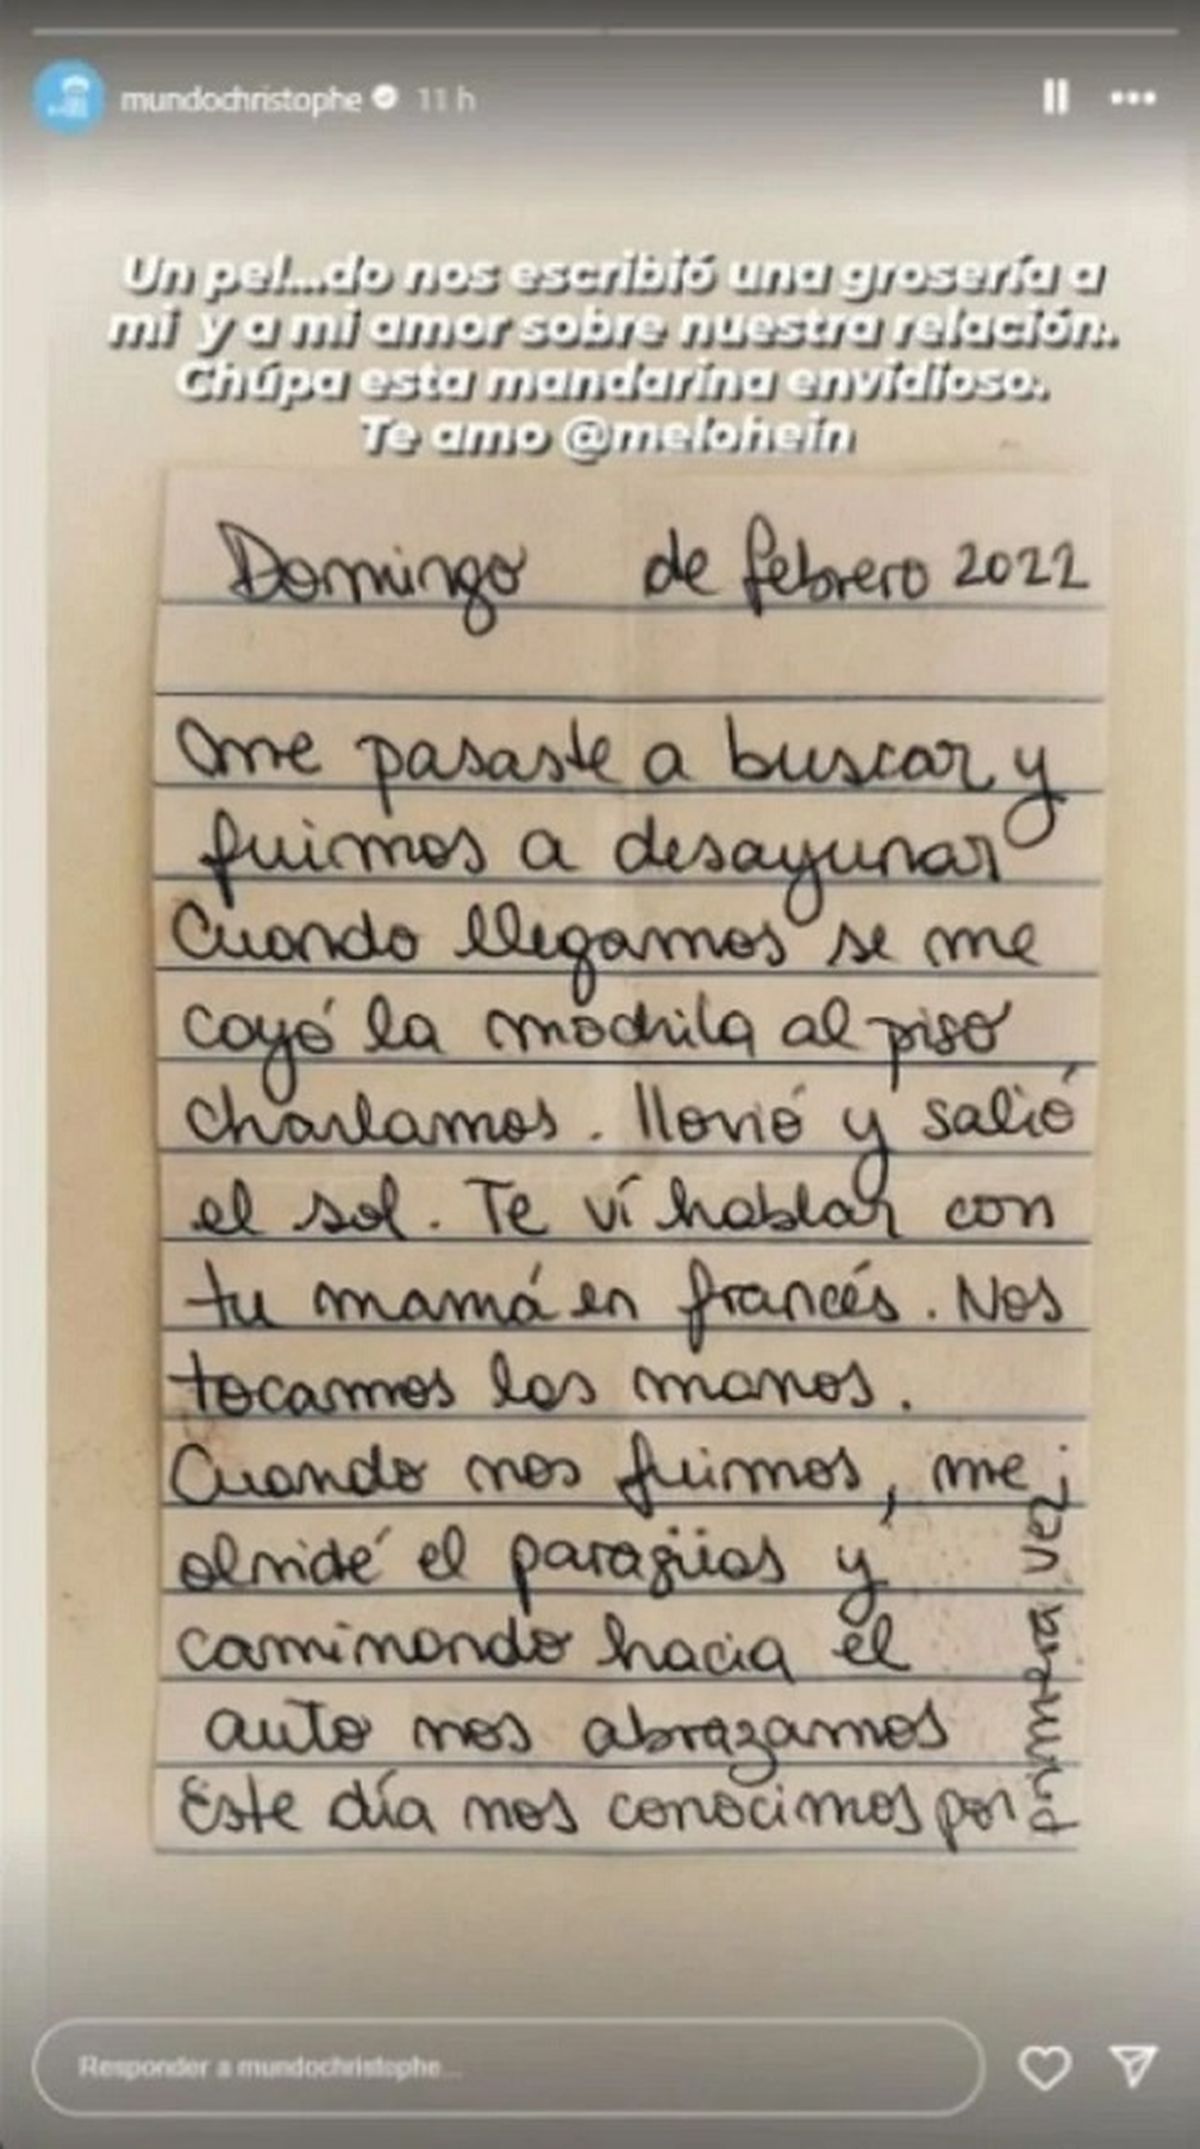 mundochristophe 11 h
Un pel...do nos escribió una grosería a
mi y a mi amor sobre nuestra relación..
Chúpa esta mandarina envidioso.
Te amo @melohein
Domingo de febrero 2022
me pasaste a buscar y
fuimos a desayunar
Cuando llegamos se me
cayó la mochila al piso
charlamos. llovió y salió
el sol. Te ví hablar con
tu mamá en francés. Nos
tocamos las manos.
Cuando nos fuimos, me
olvidé el paragüas y
caminando hacia el
auto nos abrazamos
Este día nos conocimos por
primera vez.
Responder a mundochristophe...